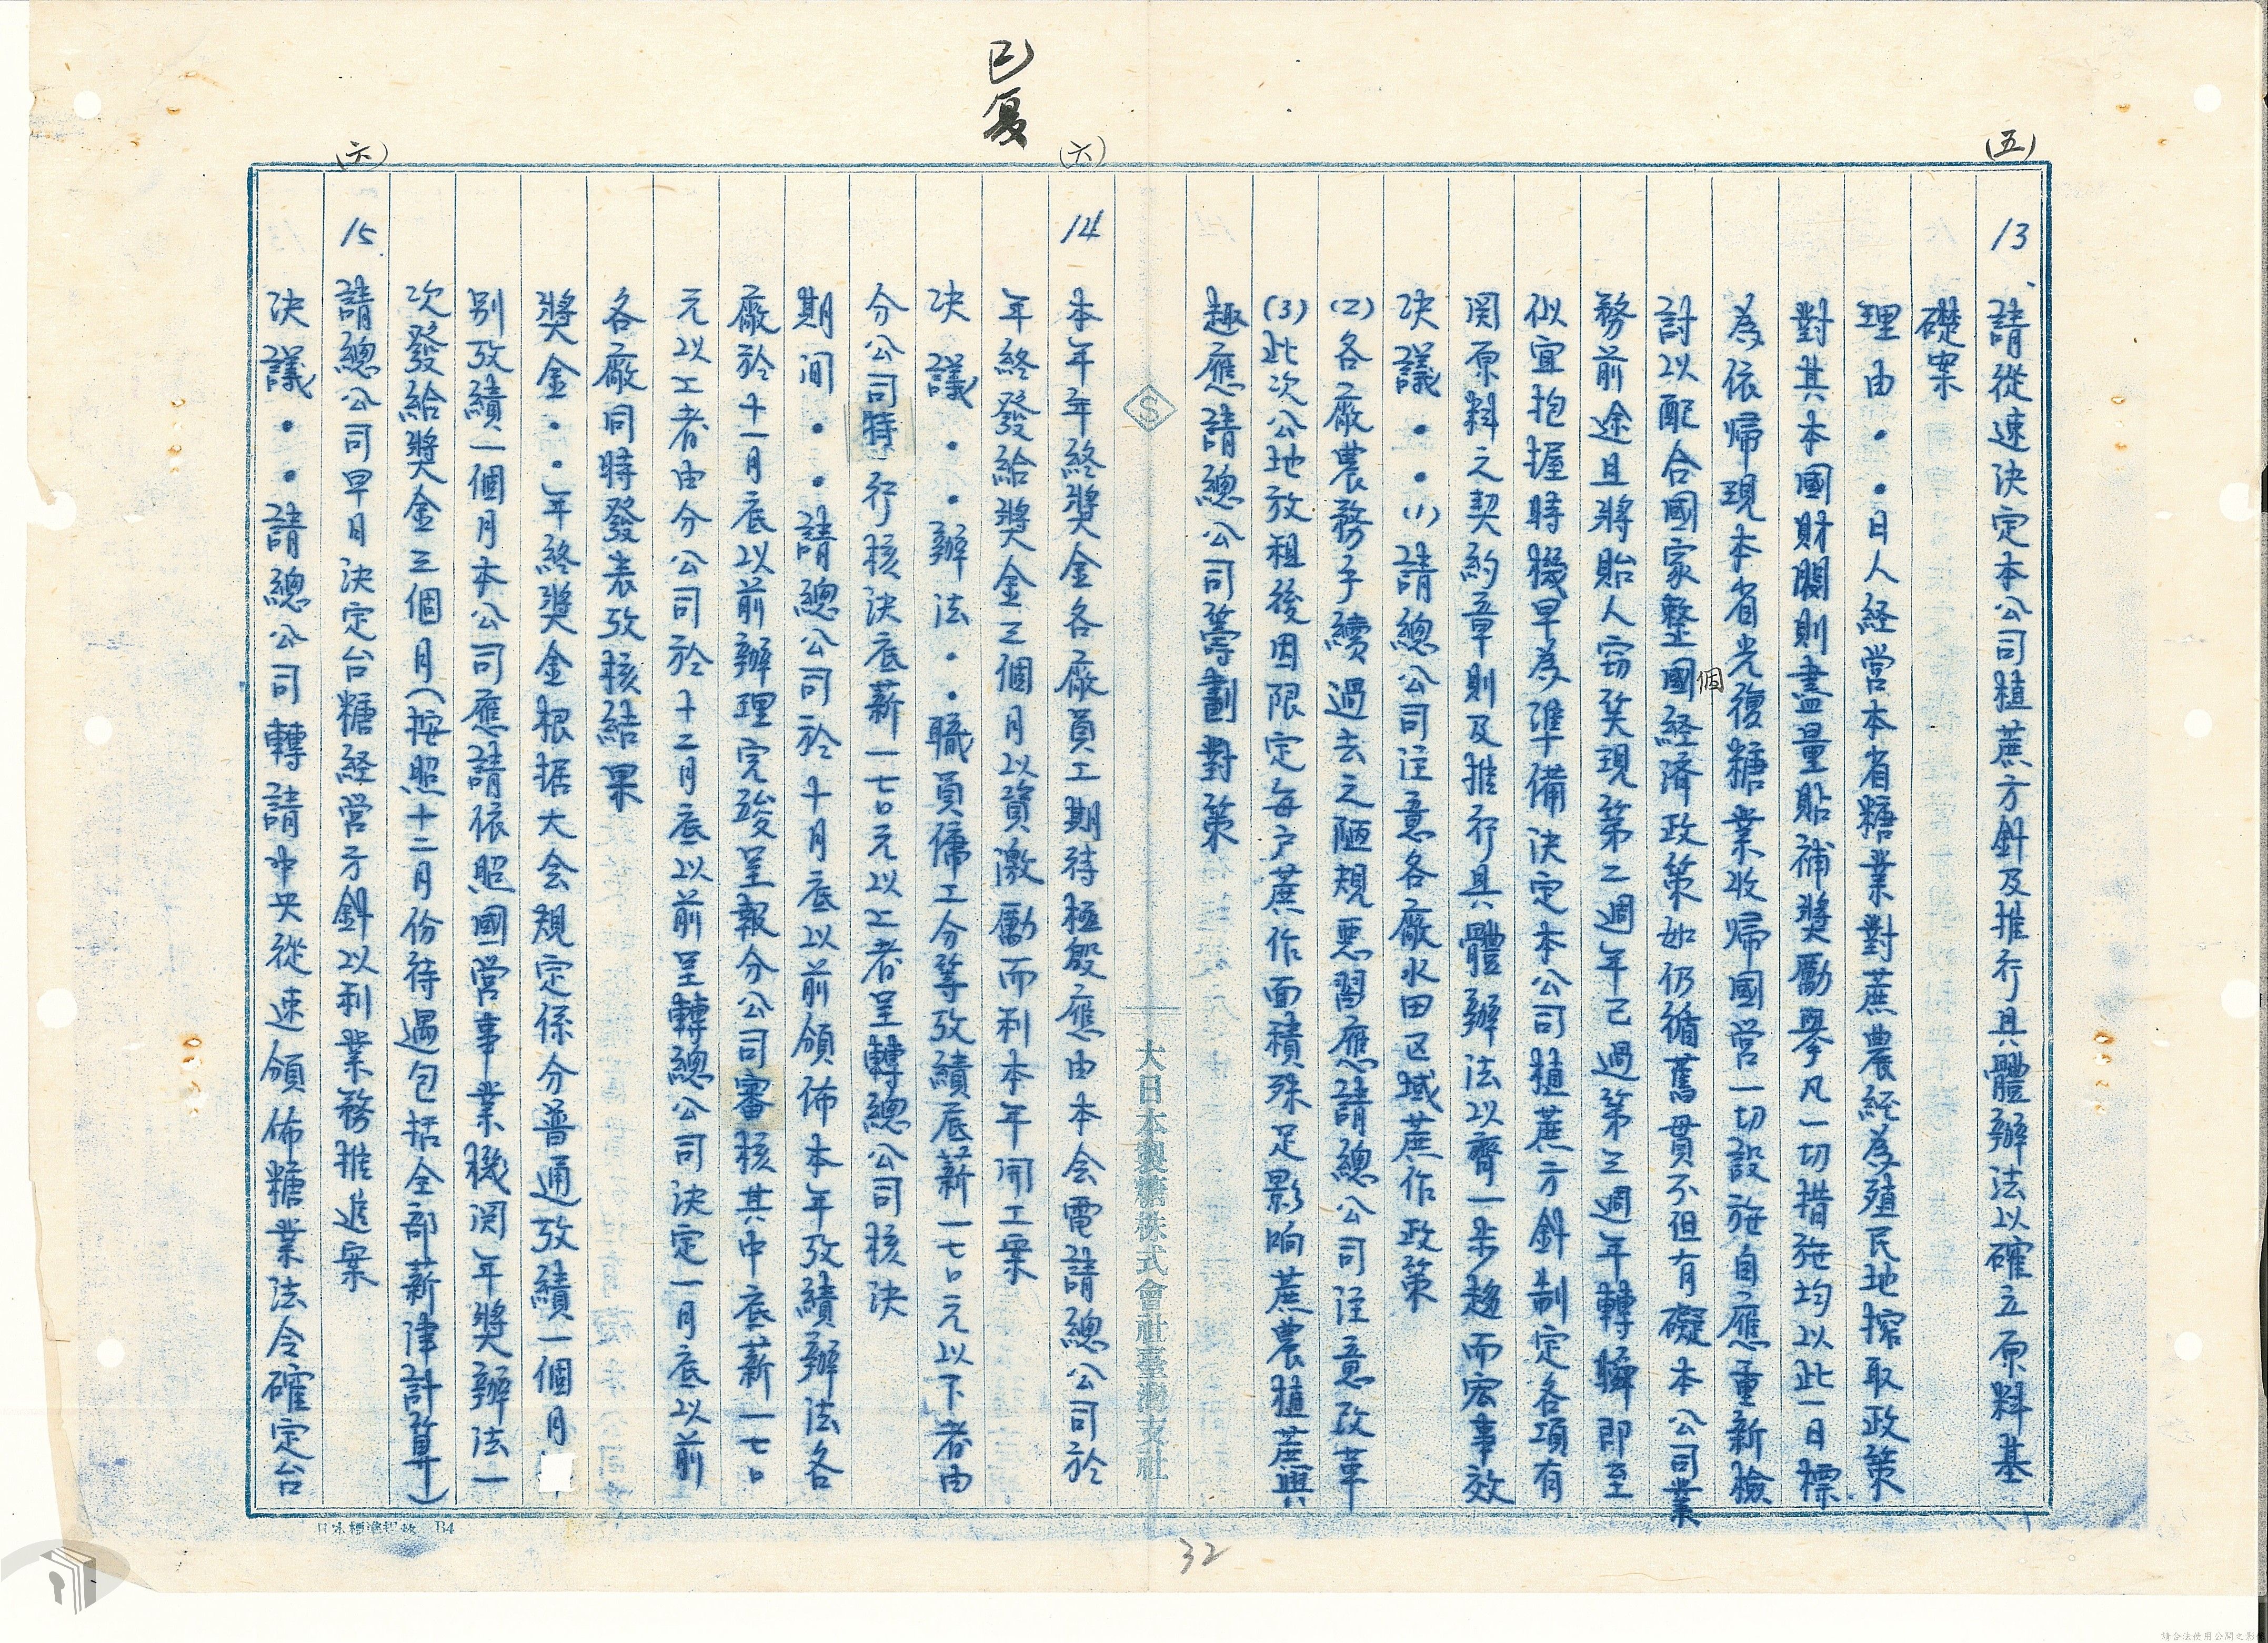 (五)
13、請從速決定本公司植蔗方針及推行具體辦法以確立原料基
礎案
理由··日人経営本省糖業對蔗農経為殖民地搾取政策
對其本國財閥則盡量貼補獎勵擧凡一切措施均以此一日標
為依帰現本省光復糖業收帰國営一切設施自應重新檢
討以配合國家整個國経済政策如仍循舊貫不但有礙本公司業
務前途且將貽人窃笑現第二週年已過第三週年轉瞬即至
似宜抱握時機早為準備決定本公司植蔗方針制定各項有
関原料之契約章則及推行具體辦法以齊一步趨而宏事效
決議··(1)請總公司注意各廠水田区域蔗作政策
(2)各廠農務手續過去之陋規悪習應請總公司注意改革
(3)此次公地放租後因限定每户蔗作面積殊足影响蔗農植蔗興
趣應請總公司籌劃對策
S 大日本製糖株式會社臺灣支社
已复
(六)
14 本年年終獎金各廠員工期待極殷應由本会電請總公司於
年終發給獎金三個月以資激勵而利本年開工案
決議··辦法··職員傭工分等攷績底薪一七〇元以下者由
分公司特行核決底薪一七〇元以上者呈轉總公司核決
期间··請總公司於十月底以前頒佈本年攷績辦法各
廠於十一月底以前辦理完竣呈報分公司審核其中底薪一七〇
元以上者由分公司於十二月底以前呈轉總公司決定一月底以前
各廠同時發表攷核結果
獎金··年終獎金根据大会規定係分普通攷績一個月
别攷績一個月本公司應請依照國営事業機関年獎辦法一
次發給獎金三個月(按照十二月份待遇包括全部薪津計算)
(六)
15 請總公司早日決定台糖経営方針以利業務推進案
決議··請總公司轉請中央從速頒佈糖業法令確定台
B4
32
請合法使用公開之影像